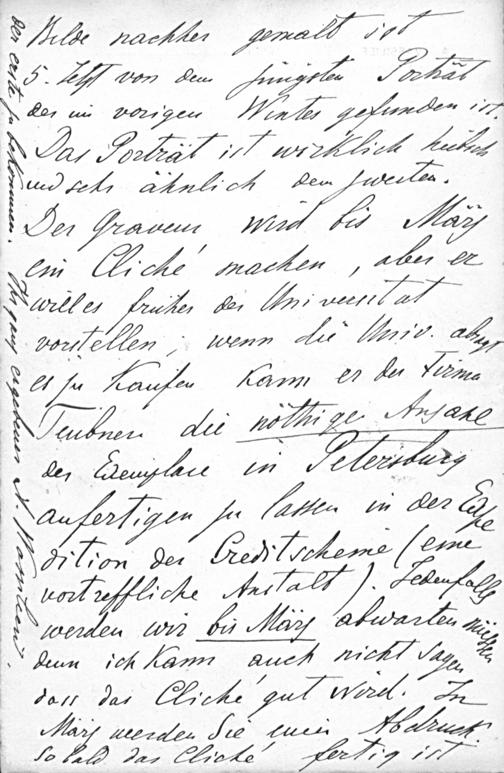 Bilde nachher gemalt ist
5. Jetzt von dem jüngsten Porträt
des im vorigen Winter gefunden ist.
Das Porträt ist wirklich hübsch
und sehr ähnlich dem zweiten.
Der Graveur wird bis März
ein Cliché machen, aber er
will es früher der Universitat
vorstellen; wenn die Univ. absagt
es zu Kaufen Kann er der Firma
Teubner die nöthige Anzahl
der Exemplare in Petersburg
anfertigen zu lassen in der Expe
dition der Creditscheine (eine
vortreffliche Anstalt). Jedenfalls
werden wir bis März abwarten müssen
denn ich Kann auch nicht sagen
dass das Cliché gut wird. In
März werden Sie, einen Abdruck
sobald das Cliché fertig ist
der erste zu bekommen. Ihr ganz ergebener A. Wassiliew.